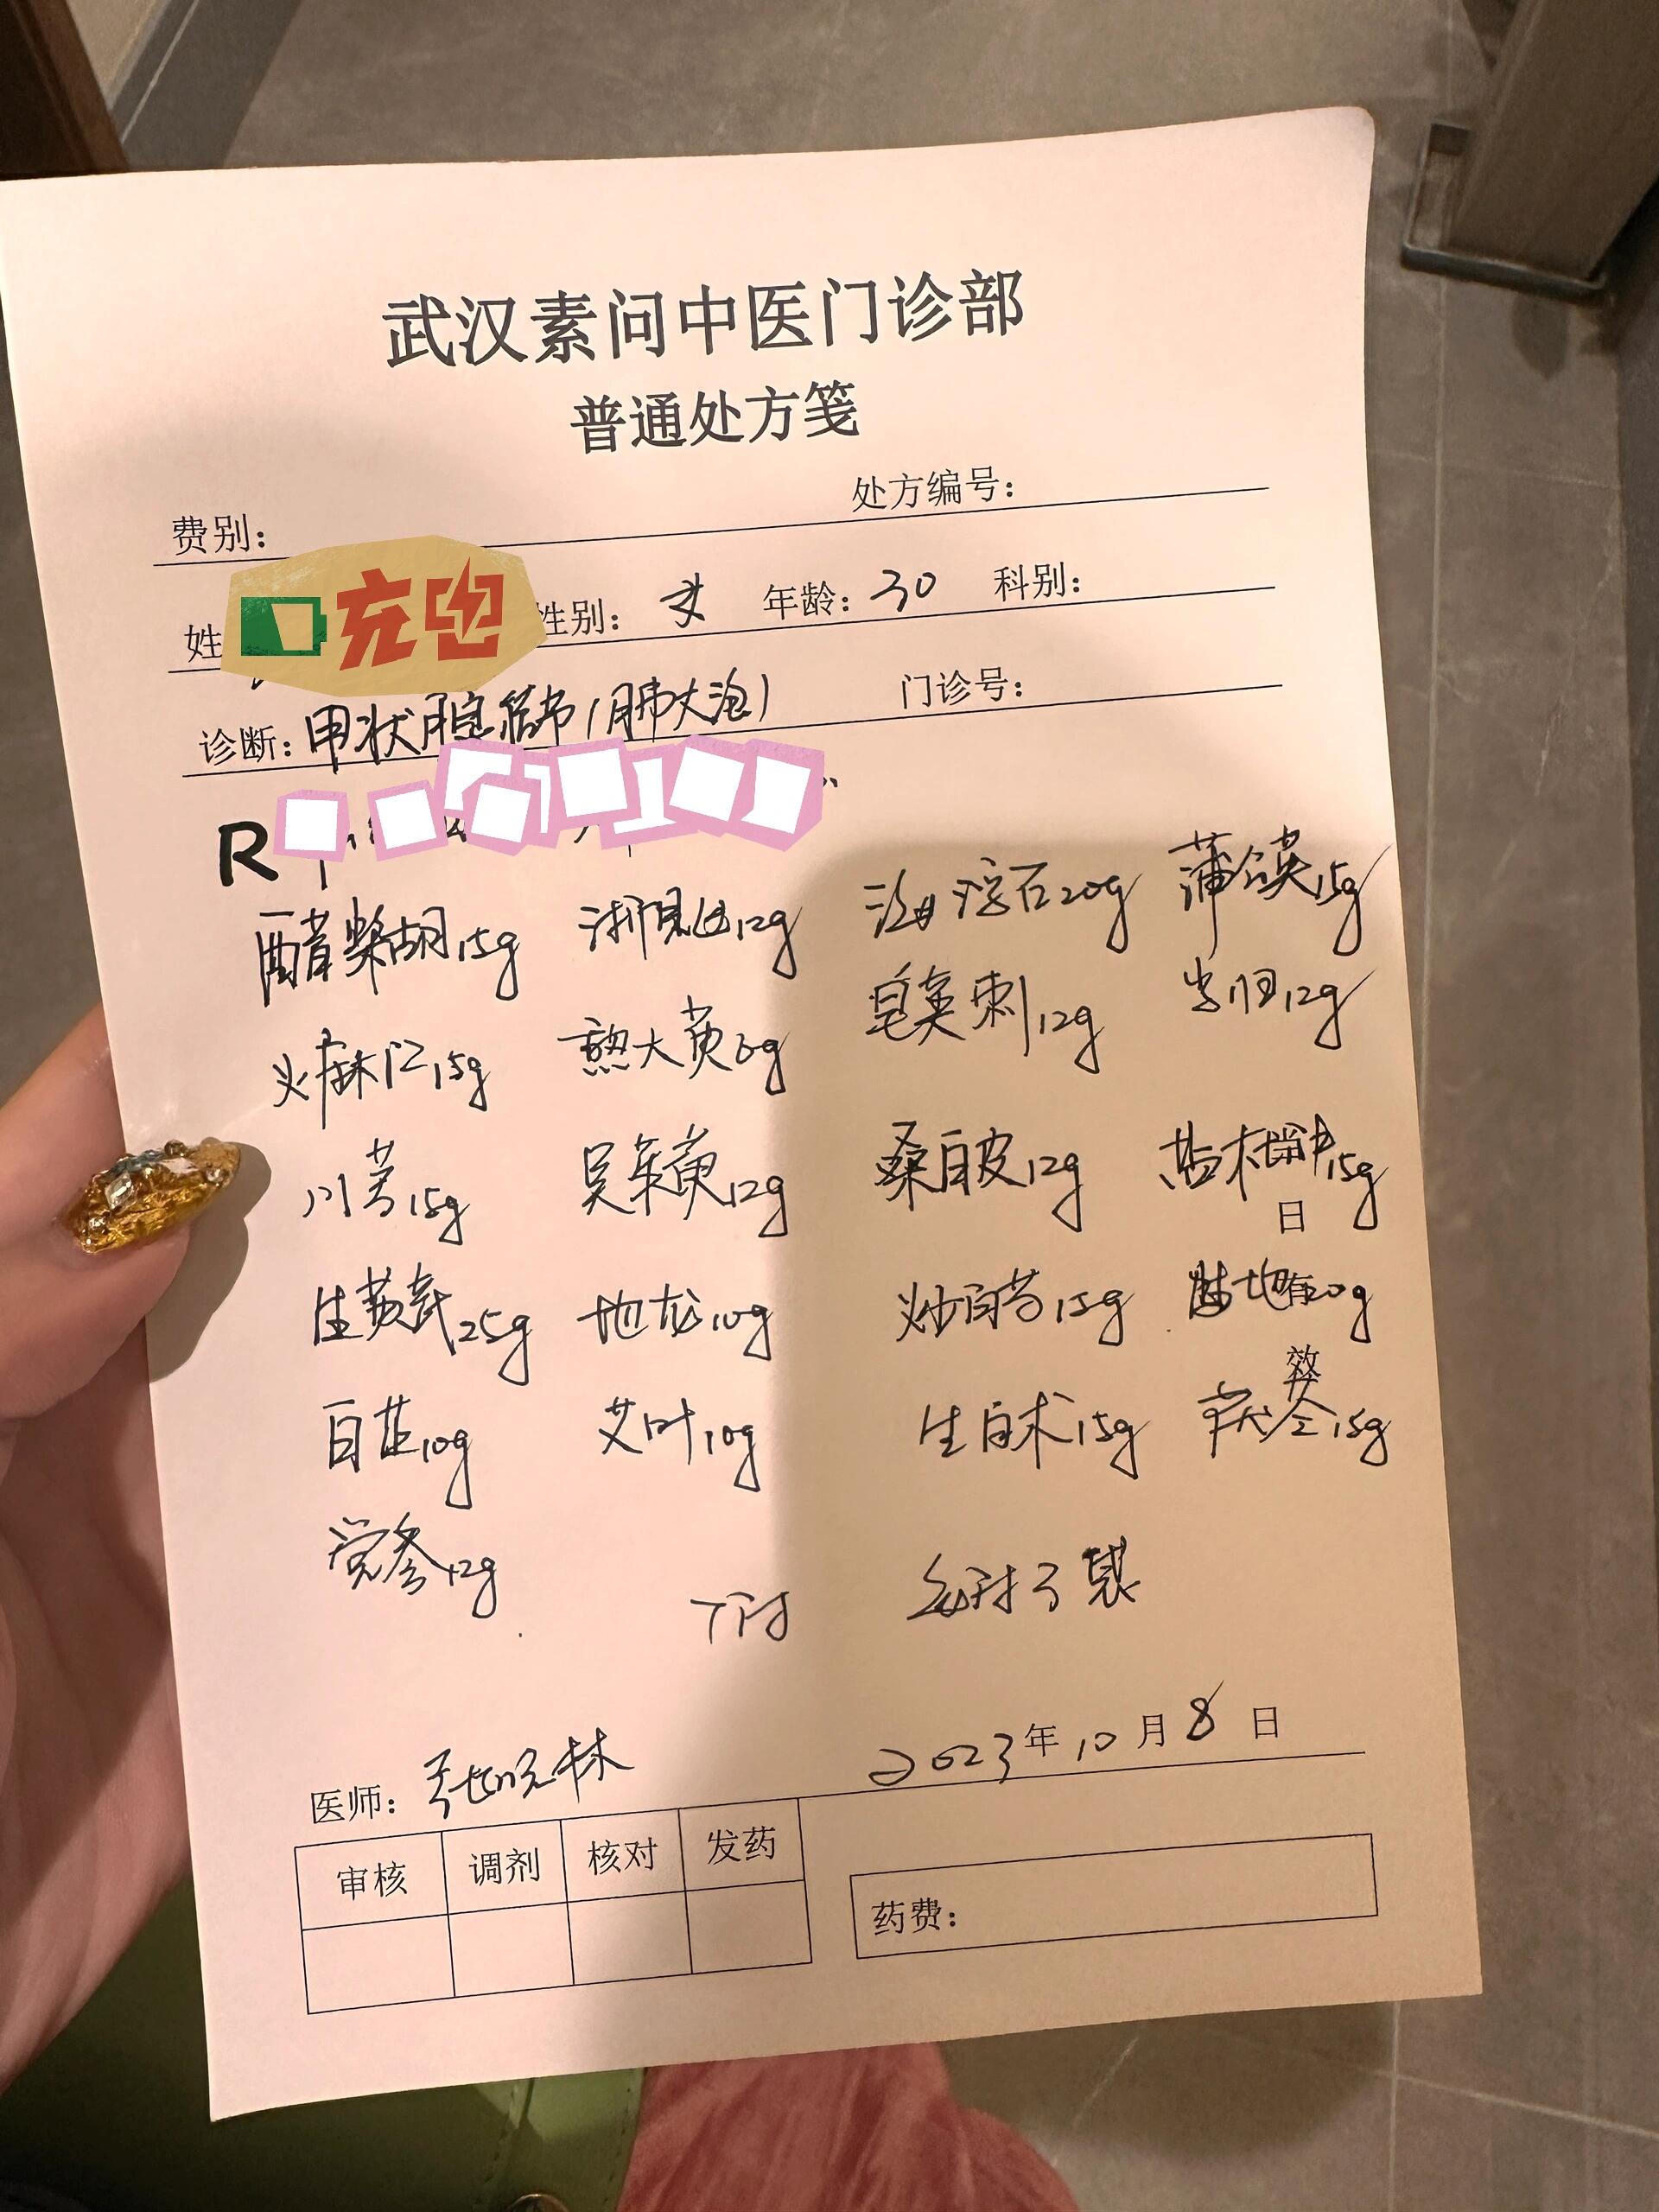 武汉素问中医门诊部
普通处方笺
费别： 处方编号：
姓 充电 性别： 女 年龄：30 科别：
诊断：甲状腺结节（肺大泡） 门诊号：
R
醋柴胡15g 浙贝母12g 海浮石20g 蒲公英15g
火麻仁15g 熟大黄6g 皂荚刺12g 当归12g
川芎15g 吴茱萸12g 桑白皮12g 盐杜仲15g
日
生黄芪25g 地龙10g 炒白芍15g 地20g
有
效
白芷10g 艾叶10g 生白术15g 茯苓15g
党参12g
7付 每付3袋
医师： 林 2023年10月8日
审核 调剂 核对 发药
药费：